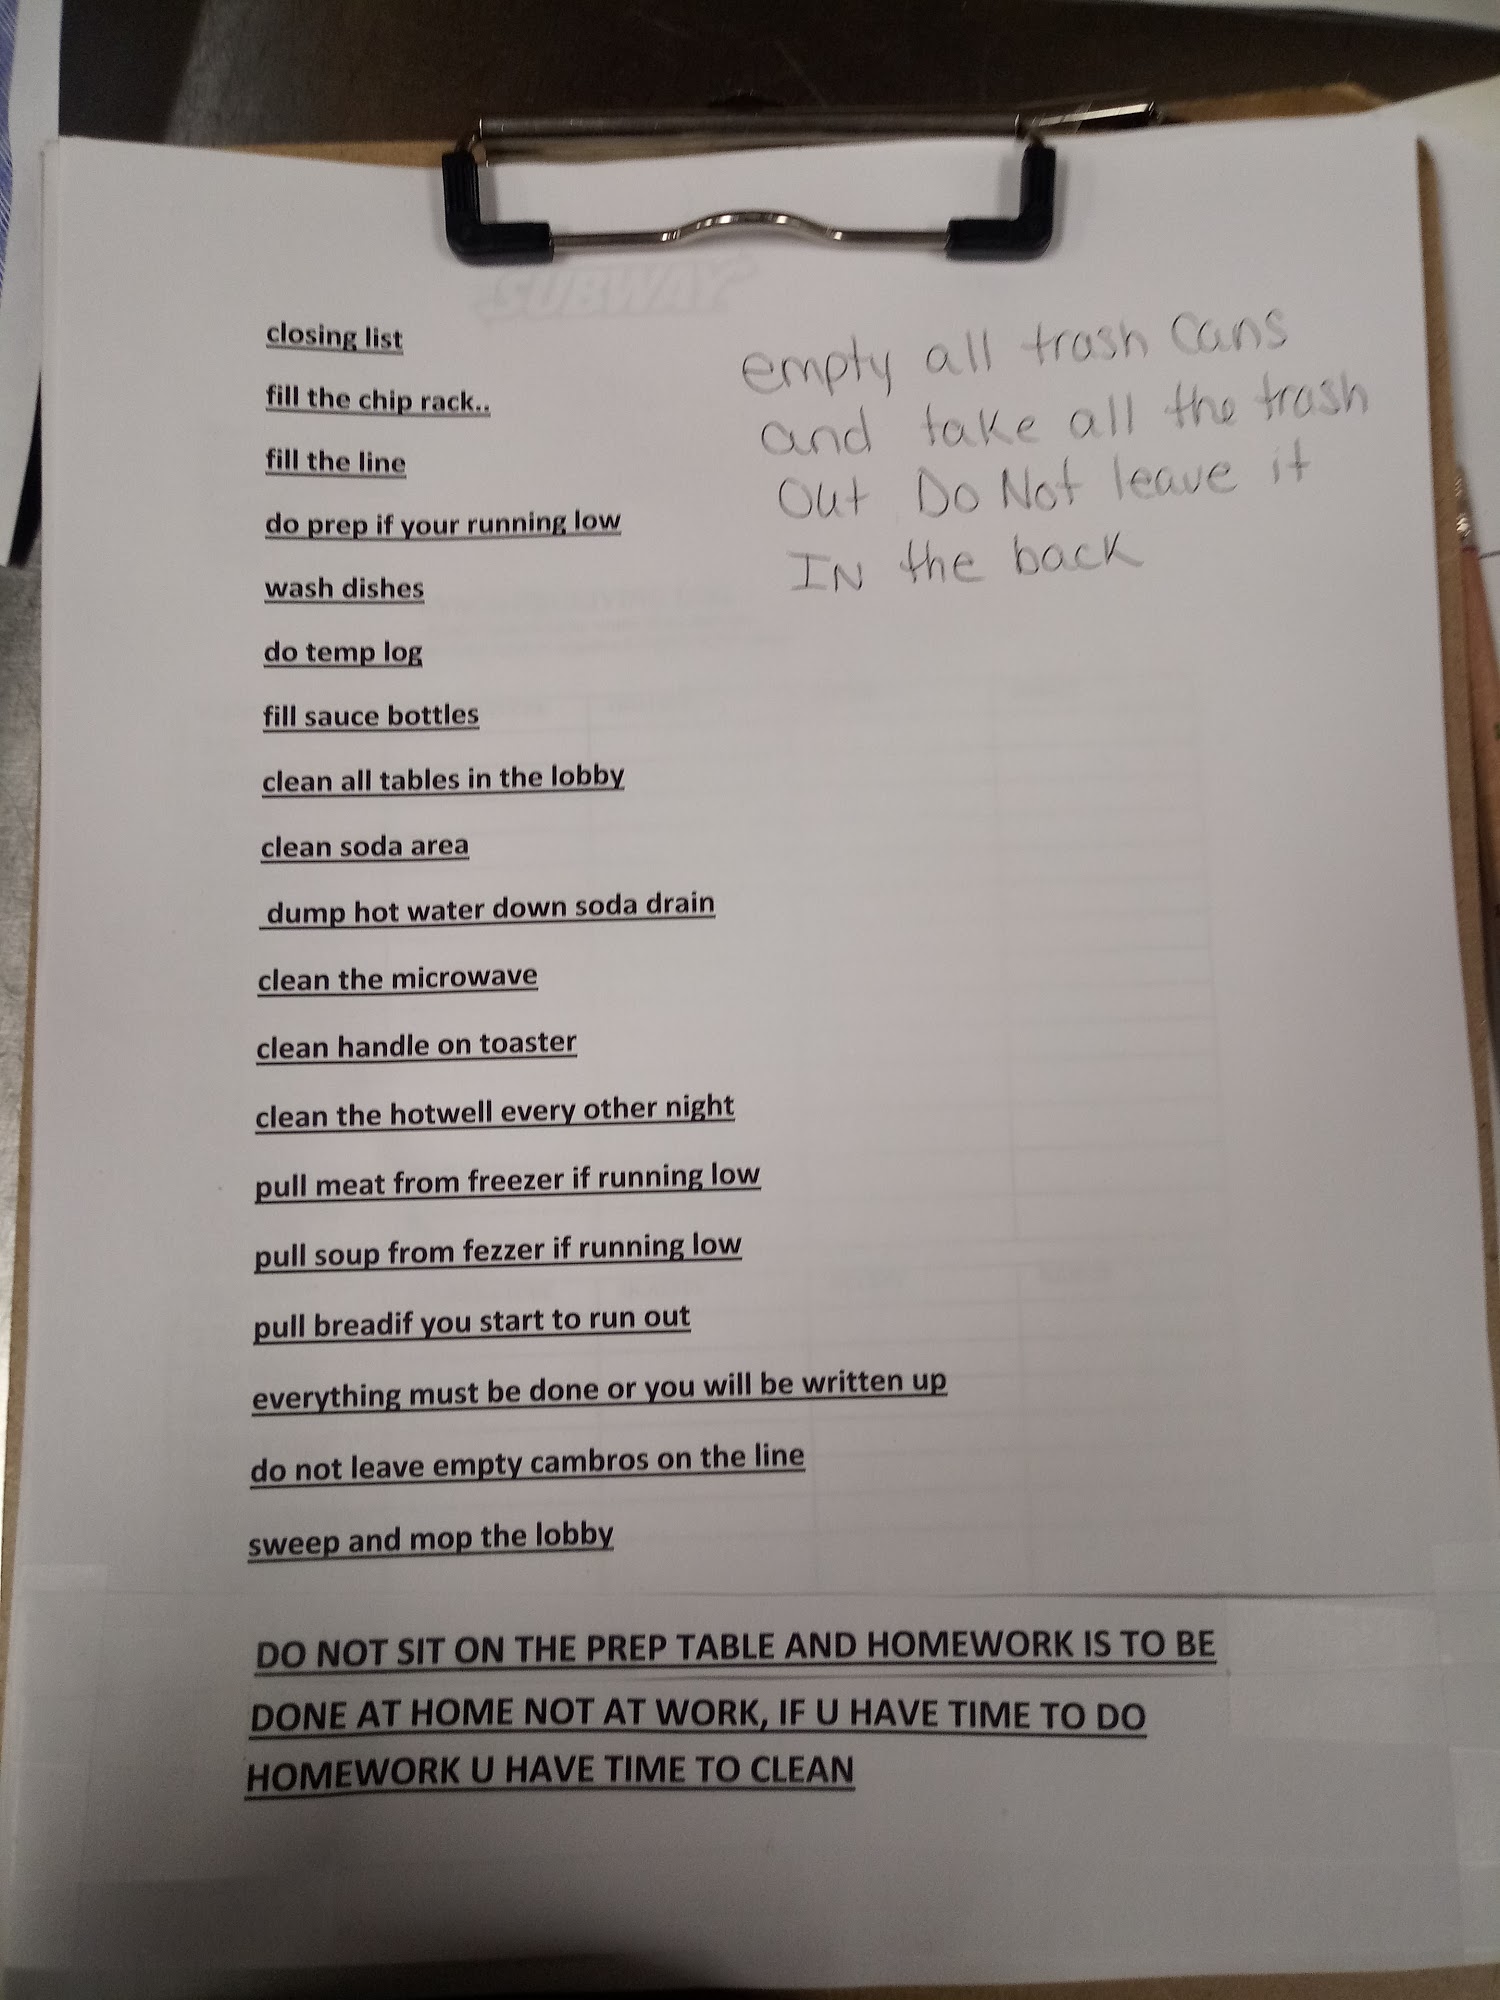 SUBWAY
closing list
fill the chip rack..
fill the line
do prep if your running low
wash dishes
do temp log
fill sauce bottles
clean all tables in the lobby
clean soda area
dump hot water down soda drain
clean the microwave
clean handle on toaster
clean the hotwell every other night
pull meat from freezer if running low
pull soup from fezzer if running low
pull breadif you start to run out
everything must be done or you will be written up
do not leave empty cambros on the line
sweep and mop the lobby
DO NOT SIT ON THE PREP TABLE AND HOMEWORK IS TO BE
DONE AT HOME NOT AT WORK, IF U HAVE TIME TO DO
HOMEWORK U HAVE TIME TO CLEAN
empty all trash cans
and take all the trash
Out Do Not leave it
IN the back